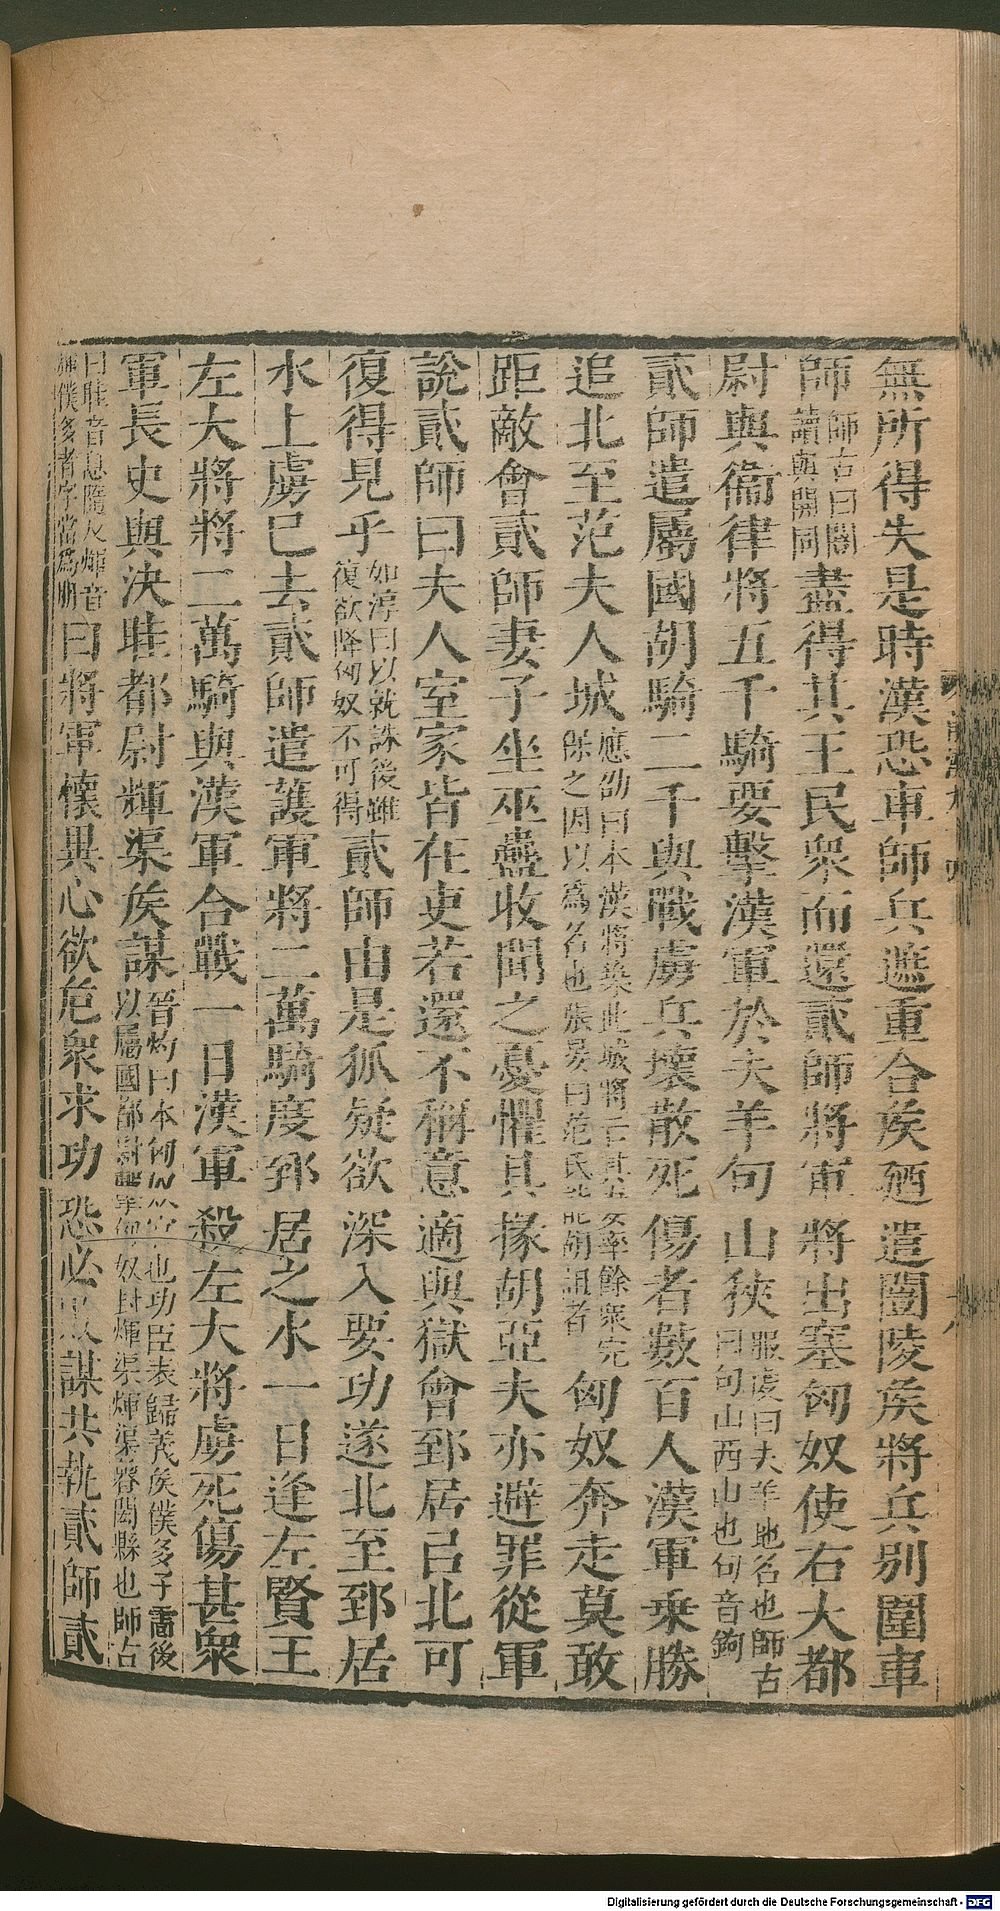 無所得失是時漢恐車師兵遮重合矦廼遣闓陵矦將兵別圍車
師師古曰闓讀與開同盡得其王民衆而還貳師將軍將出塞匈奴使右大都
尉與衞律將五千騎要擊漢軍於夫羊句山狹服虔曰夫羊地名也師古曰句山西山也句音鉤
貳師遣屬國胡騎二千與戰虜兵壞散死傷者數百人漢軍乗勝
追北至范夫人城應劭曰本漢將築此城將亡其妻率餘衆完保之因以爲名也張晏曰范氏能胡詛者匈奴奔走莫敢
距敵會貳師妻子坐巫蠱收聞之憂懼其掾胡亞夫亦避罪從軍
說貳師曰夫人室家皆在吏若還不稱意適與獄會郅居以北可
復得見乎如淳曰以就誅後雖復欲降匈奴不可得貳師由是狐疑欲深入要功遂北至郅居
水上虜已去貳師遣護軍將二萬騎度郅居之水一日逢左賢王
左大將將二萬騎與漢軍合戰一日漢軍殺左大將虜死傷甚衆
軍長史與決眭都尉輝渠矦謀晉灼曰本匈奴官也功臣表歸義矦僕多子雷後以屬國都尉擊匈奴封煇渠煇渠魯陽縣也師古
曰眭音息隨反煇音僕多者字當爲朋曰將軍懷異心欲危衆求功恐必敗謀共執貳師貳
Digitalisierung gefördert durch die Deutsche Forschungsgemeinschaft - DFG